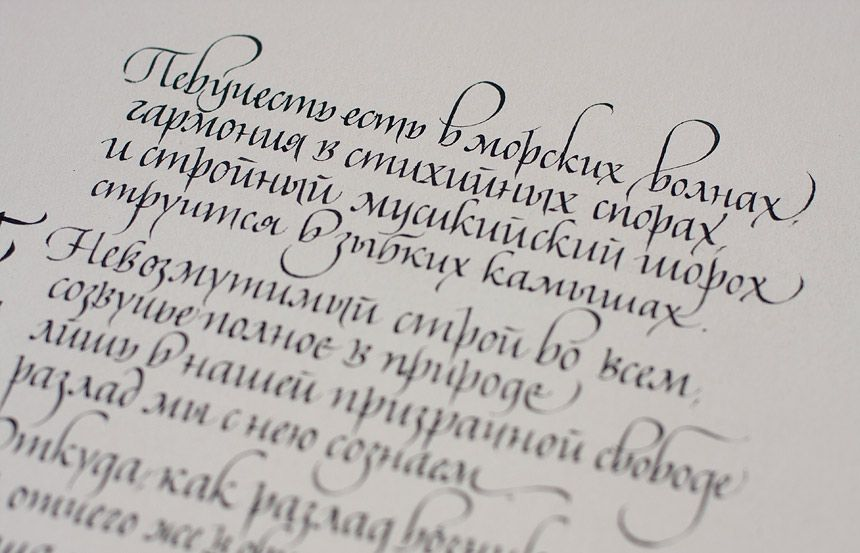 Певучесть есть в морских волнах,
гармония в стихийных спорах,
и стройный мусикийский шорох
струится в зыбких камышах.
Невозмутимый строй во всем,
созвучье полное в природе
лишь в нашей призрачной свободе
разлад мы с нею сознаем.
Откуда, как разлад возник
отчего же